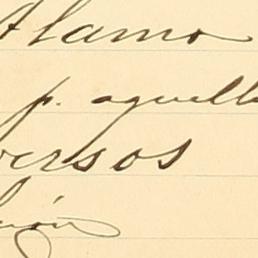 Alamo
p. aquell
versos
ión